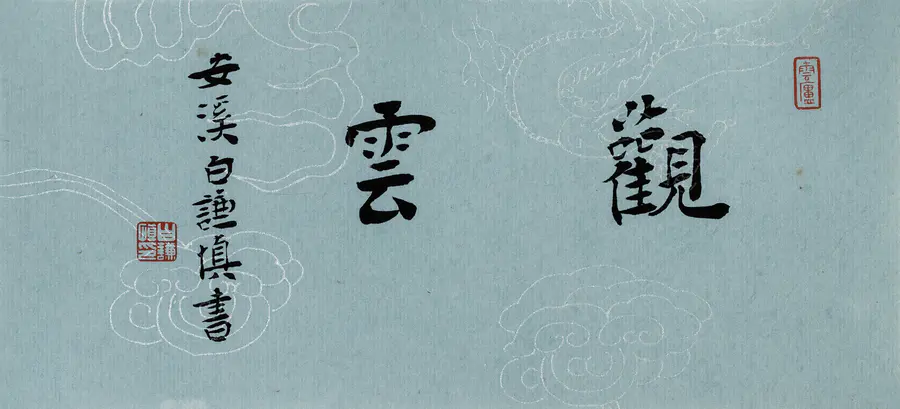 觀雲
安溪白謙慎書